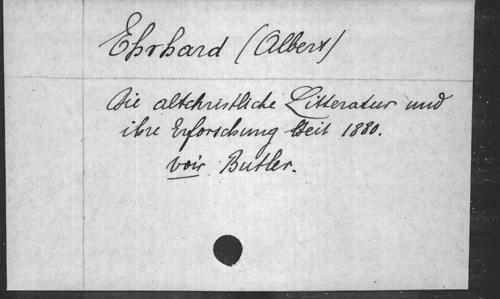 Ehrhard (Albert)
Die altchristliche Litteratur und
ihre Erforschung seit 1880.
voir Butler.